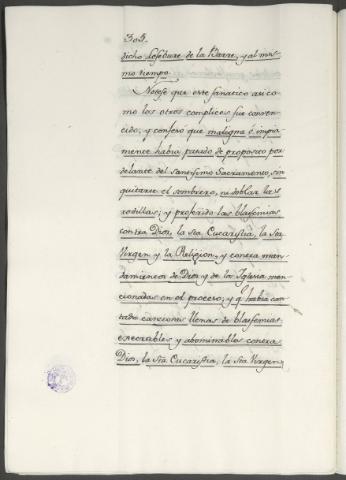 303.
dicho Lefebure de la Barre, y al mis-
mo tiempo.
Notese que este fanatico asi co-
mo los otros complices fue conven-
cido, y confesó que maligna é impia-
mente habia pasado de proposito por
delante del Santisimo Sacramento, sin
quitarse el sombrero, ni doblar las
rodillas; y proferido las blasfemias
contra Dios, la Sta Eucaristia, la Sta
Virgen y la Religion, y contra man-
damientos de Dios y de la Iglesia men-
cionadas en el proceso; y q.e habia can-
tado canciones llenas de blasfemias
execrables y abominables contra
Dios, la Sta Eucaristia, la Sta Virgen,